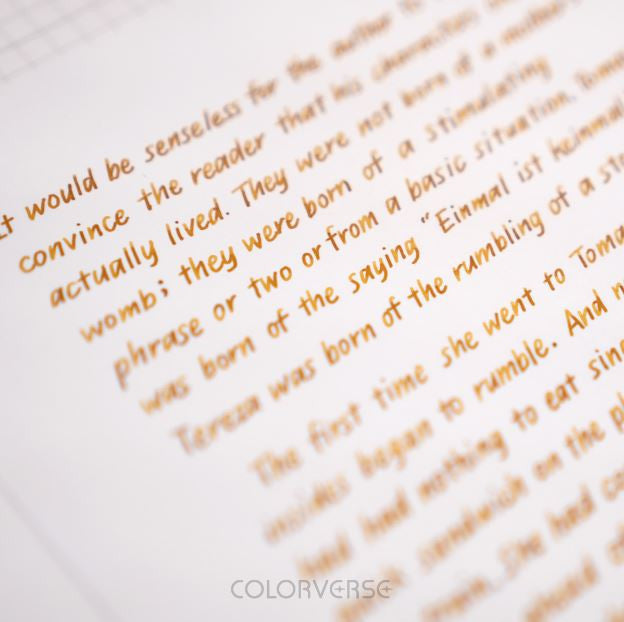 It would be senseless for the author to
convince the reader that his characters
actually lived. They were not born of a mother's
womb; they were born of a stimulating
phrase or two or from a basic situation. Tomas
was born of the saying "Einmal ist keinmal
Tereza was born of the rumbling of a sto
The first time she went to Toma
insides began to rumble. And
had had nothing to eat sin
sandwich on the pl
She had
ahead of
COLORVERSE